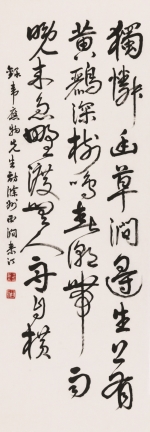 獨憐幽草澗邊生上有
黃鸝深樹鳴春潮帶雨
晚來急野渡無人舟自橫
錄韋應物先生詩滁州西澗